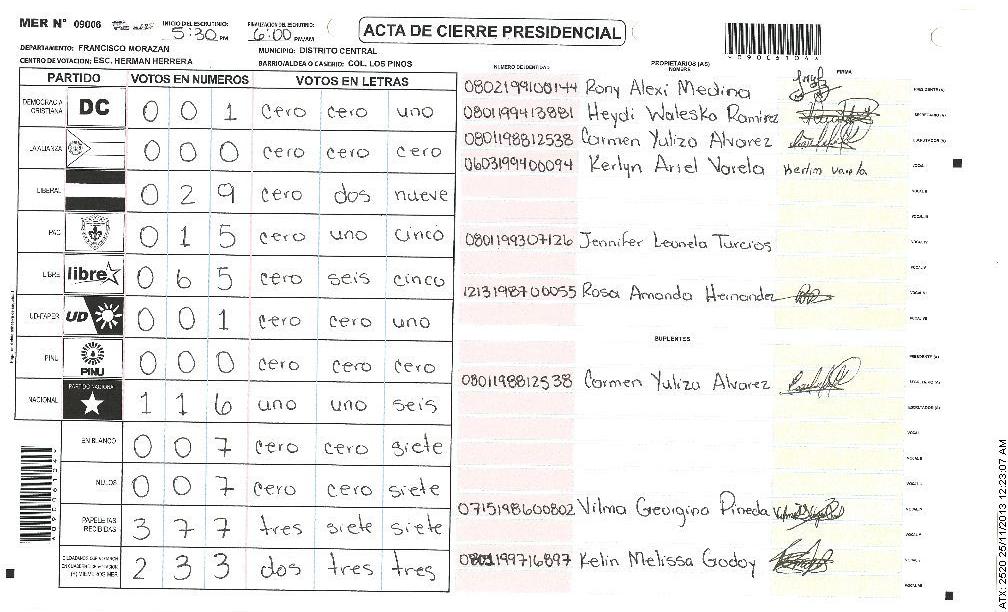 MER N° 09006
INICIO DEL ESCRUTINIO: 5:30 PM
FINALIZACION DEL ESCRUTINIO: 6:00 PM/AM
ACTA DE CIERRE PRESIDENCIAL
DEPARTAMENTO: FRANCISCO MORAZAN
MUNICIPIO: DISTRITO CENTRAL
CENTRO DE VOTACION: ESC. HERMAN HERRERA
BARRIO/ALDEA O CASERIO: COL. LOS PINOS
PARTIDO VOTOS EN NUMEROS VOTOS EN LETRAS
DEMOCRACIA CRISTIANA DC 0 0 1 cero cero uno
LA ALIANZA 0 0 0 cero cero cero
LIBERAL 0 2 9 cero dos nueve
PAC 0 1 5 cero uno cinco
LIBRE libre 0 6 5 cero seis cinco
UD-FAPER UD 0 0 1 cero cero uno
PINU PINU 0 0 0 cero cero cero
NACIONAL PARTIDO NACIONAL 1 1 6 uno uno seis
EN BLANCO 0 0 7 cero cero siete
NULOS 0 0 7 cero cero siete
PAPELETAS RECIBIDAS 3 7 7 tres siete siete
2 3 3 dos tres tres
NUMERO DE IDENTIDAD PROPIETARIOS (AS) NOMBRE FIRMA
0802199108144 Rony Alexi Medina PRESIDENTE (A)
0801199413881 Heydi Waleska Ramirez SECRETARIO (A)
0801198812538 Carmen Yuliza Alvarez ESCRUTADOR (A)
0603199400094 Kerlyn Ariel Varela Kerlin Varela VOCAL I
VOCAL II
VOCAL III
0801199307126 Jennifer Leonela Turcios VOCAL IV
VOCAL V
1213198700055 Rosa Amanda Hernandez VOCAL VI
VOCAL VII
SUPLENTES
PRESIDENTE (A)
0801198812538 Carmen Yuliza Alvarez SECRETARIO (A)
ESCRUTADOR (A)
VOCAL I
VOCAL II
0715198600802 Vilma Georgina Pineda
0801199716897 Kelin Melissa Godoy
ATX: 2520 25/11/2013 12:23:07 AM